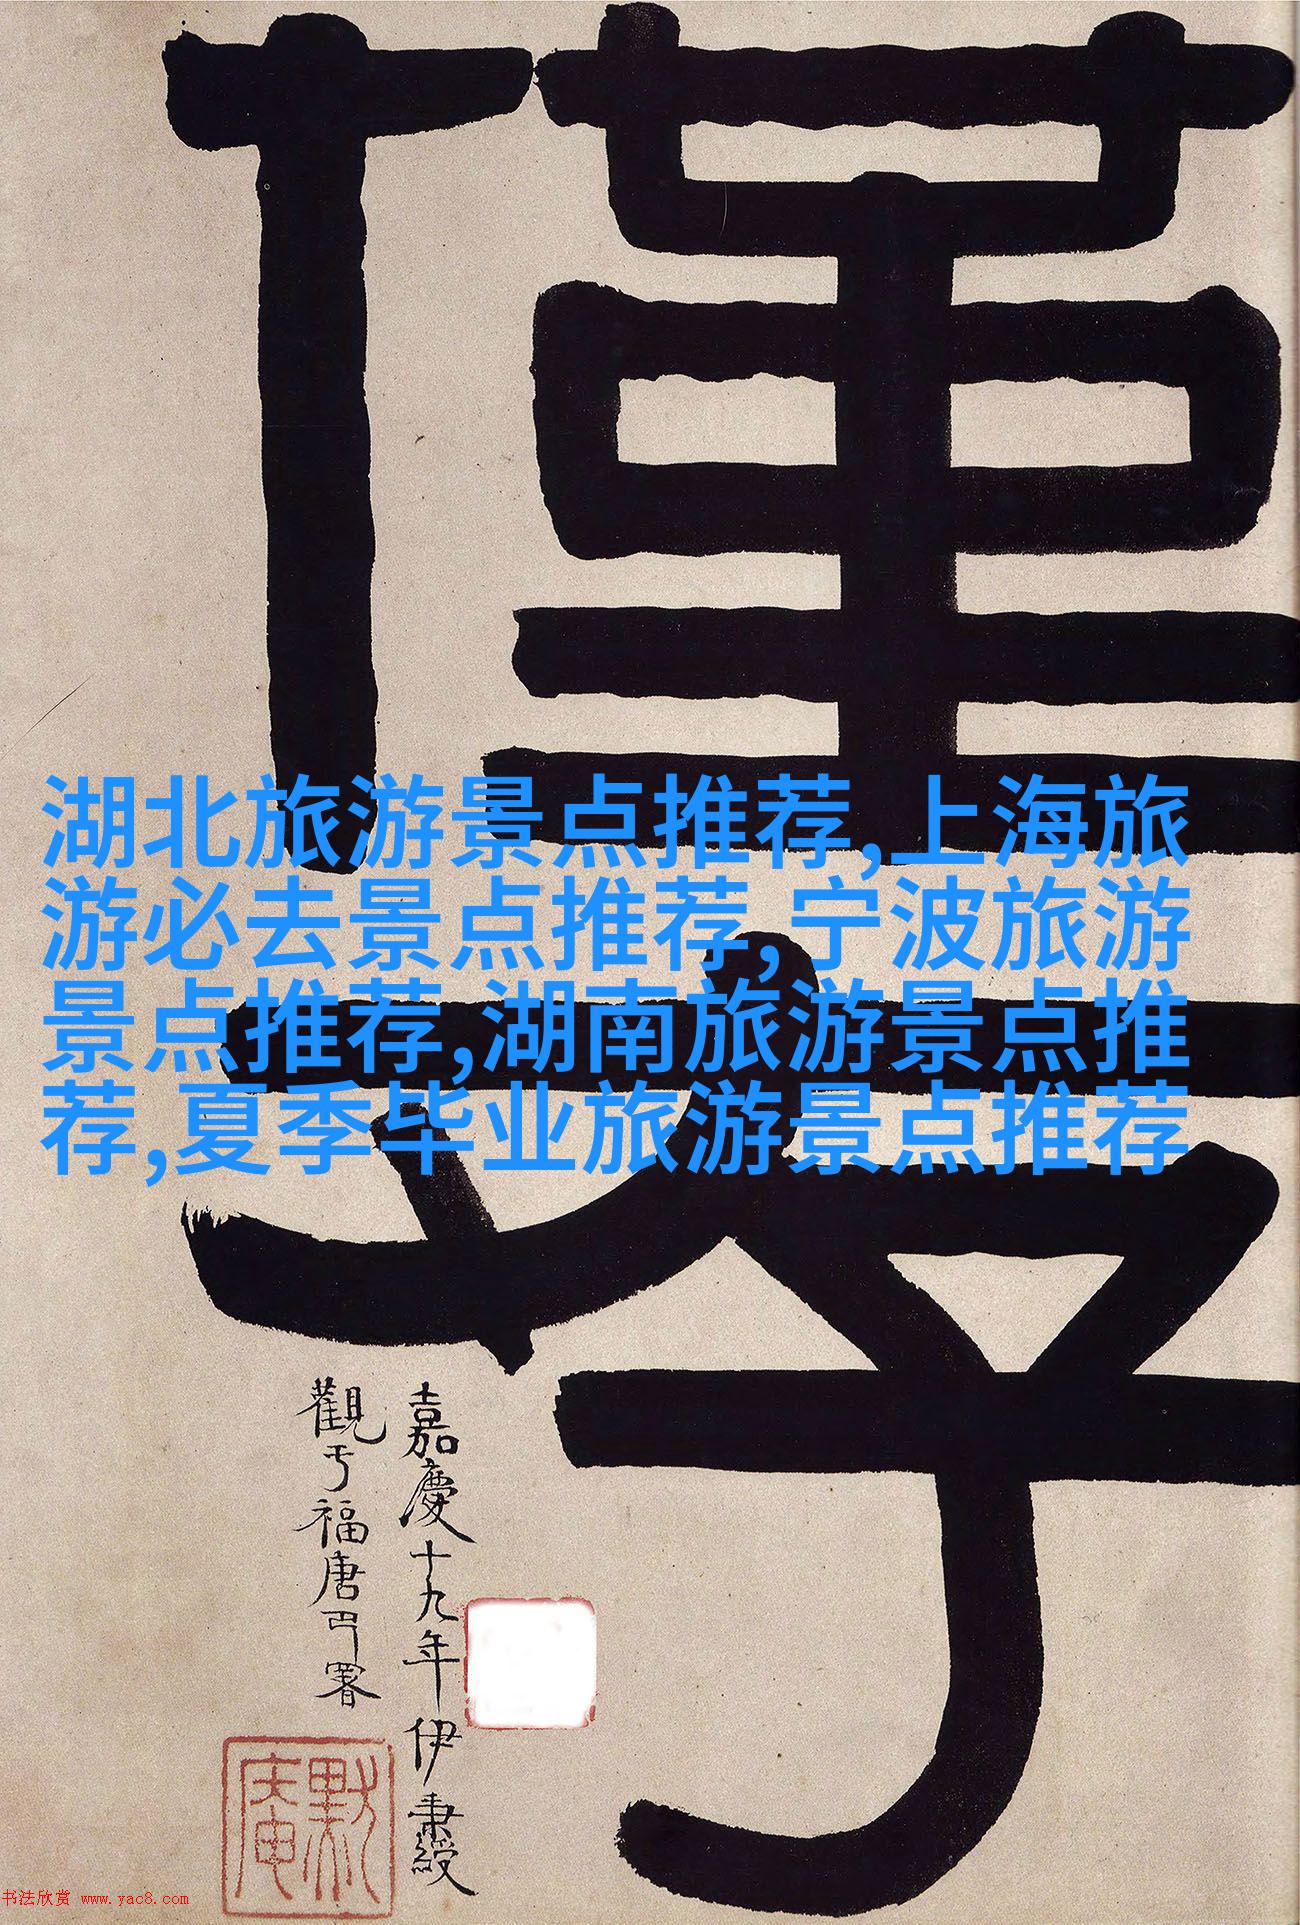 湖北旅游景点推荐,上海旅
游必去景点推荐,宁波旅游
景点推荐,湖南旅游景点推
荐,夏季毕业旅游景点推荐
嘉慶十九年伊秉綬
觀于福唐
默庵
书法欣赏 www.yac8.com